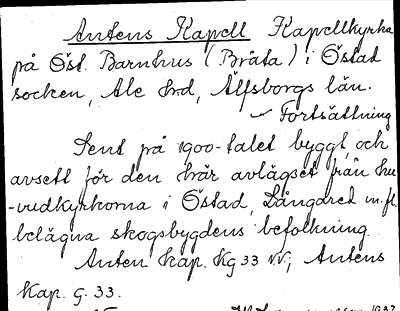 Antens Kapell Kapellkyrka
på Öst. Barnhus (Bräta) i Östad
socken, Ale hrd, Älfsborgs län.
Fortsättning
Sent på 1900-talet byggt och
avsett för den här avlägset från hu-
-vudkyrkorna i Östad, Långared m.fl.
belägna skogsbygdens befolkning.
Anten kap. Kg 33 NV, Antens
Kap. G. 33.